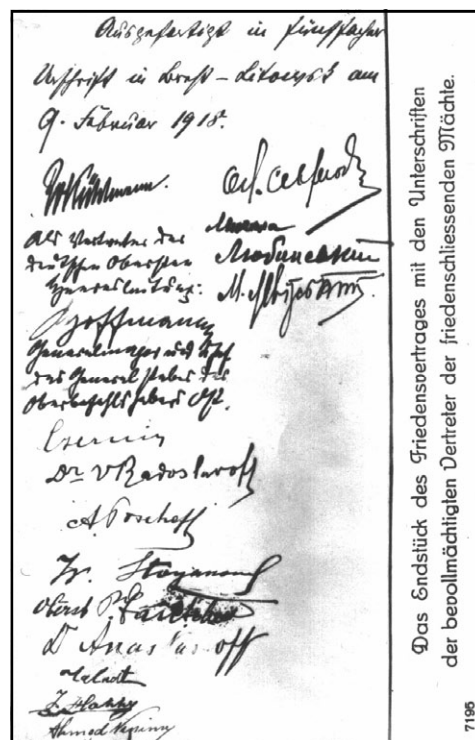 Ausgefertigt in fünffacher
Urschrift in Brest-Litowsk am
9. Februar 1918.
Kühlmann.
Als Vertreter der
deutschen Obersten
Heeresleitung:
Hoffmann
Generalmajor und Chef
des Generalstabes des
Oberbefehlshabers Ost.
Czernin
Dr VRadoslavoff
A. Toscheff
Oberst P.
Талаат
Ahmed
Микола
Любинський
М.
Das Endstück des Friedensvertrages mit den Unterschriften
der bevollmächtigten Vertreter der friedenschliessenden Mächte.
7195